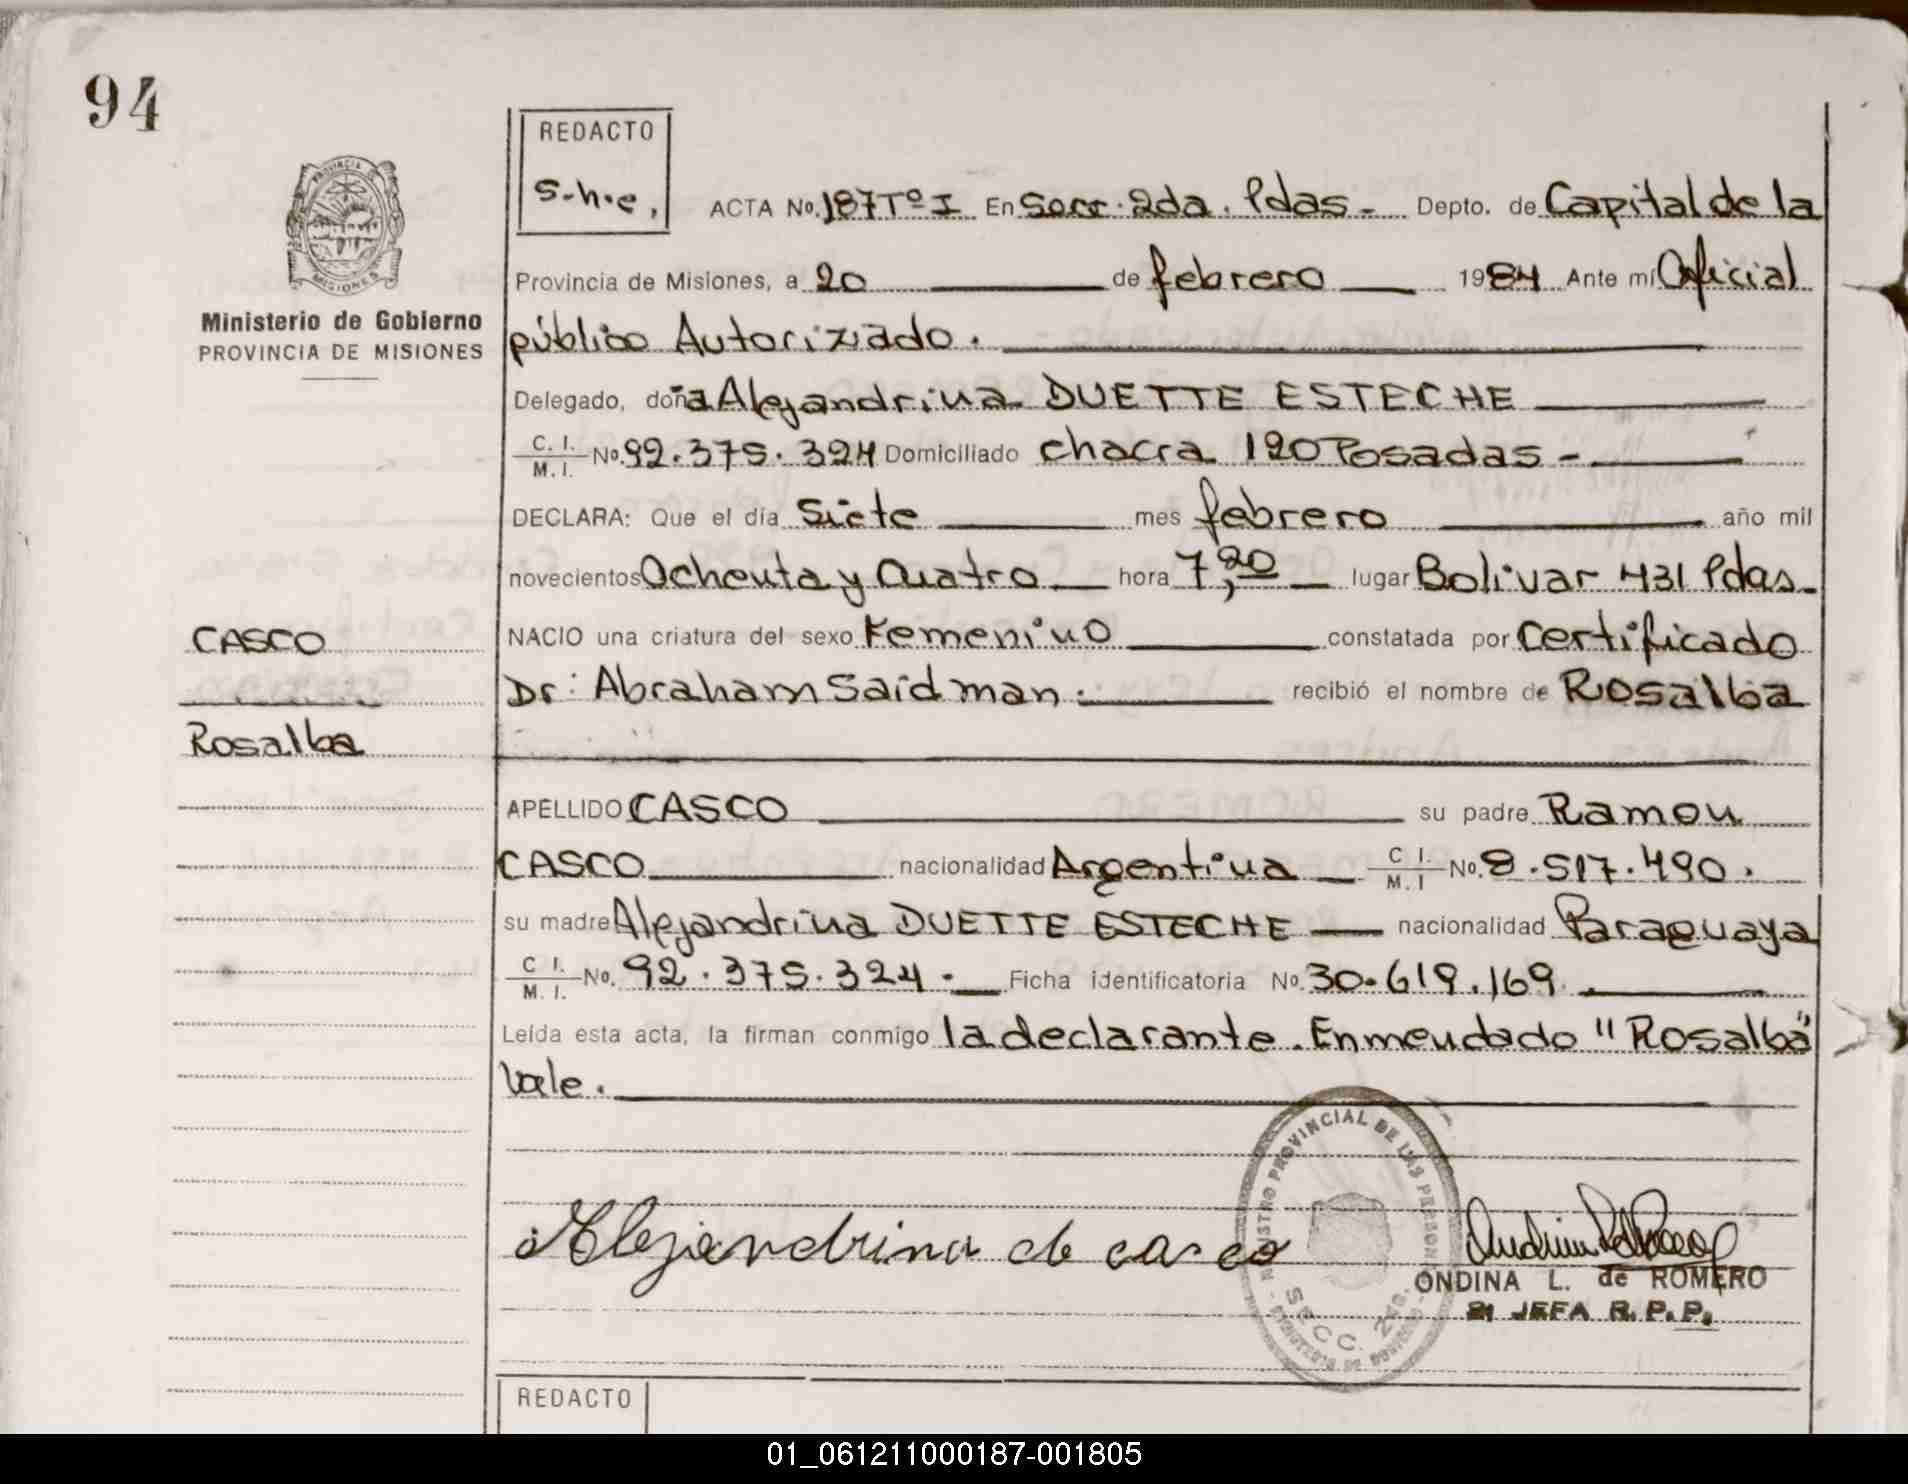 94
REDACTO
S-h-e,
ACTA No. 187 Tº I En Secc. 2da. Pdas - Depto. de Capital de la
PROVINCIA MISIONES
Provincia de Misiones, a 20 de febrero 1984 Ante mí Oficial
Ministerio de Gobierno
PROVINCIA DE MISIONES
público Autorizado.
Delegado, doña Alejandrina DUETTE ESTECHE
C. I. M. I. No. 92.375.324 Domiciliado chacra 120 Posadas -
DECLARA: Que el día Siete mes febrero año mil
novecientos Ochenta y Cuatro hora 7,20 lugar Bolivar 431 Pdas.
CASCO
NACIO una criatura del sexo Femenino constatada por Certificado
Dr: Abraham Saidman. recibió el nombre de Rosalba
Rosalba
APELLIDO CASCO su padre Ramon
CASCO nacionalidad Argentina C I. M. I No. 8.517.490.
su madre Alejandrina DUETTE ESTECHE nacionalidad Paraguaya
C I. M. I. No. 92.375.324. Ficha identificatoria No. 30.619.169
Leída esta acta, la firman conmigo la declarante. Enmendado "Rosalba"
Vale.
REGISTRO PROVINCIAL DE LAS PERSONAS
SECC. 2da.
Alejandrina de casco
ONDINA L. de ROMERO
JEFA R. P. P.
REDACTO
01_061211000187-001805